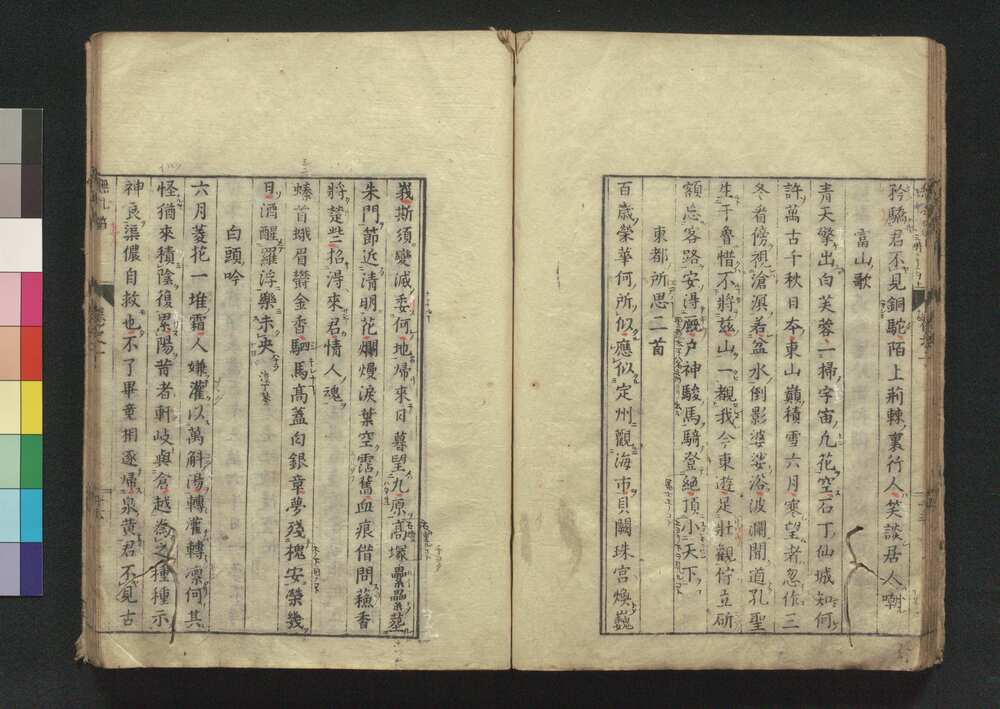 矜驕君不見銅駝陌上荊棘裏行人笑談居人嘲
富山歌
青天擎出白芙蓉一掃宇宙九花空石丁仙城知何
許萬古千秋日本東山巔積雪六月寒望者忽作三
冬看傍視滄溟若盆水倒影婆娑浴波瀾聞道孔聖
生于魯惜不將茲山一覩我今東遊足壯觀佇立斫
額忘客路安得厩戶神駿馬騎登絕頂小天下
東都所思二首
百歲榮華何所似應似定州觀海市貝闕珠宮煥巍
峩斯須變滅委何地歸來日暮望九原高塚纍纍墓
朱門節近清明花爛熳淚葉空霑舊血痕借問蘓香
將楚些招得來君情人魂
螓首蛾眉欝金香駟馬高蓋向銀章夢殘槐安榮幾
日酒醒羅浮樂未央
白頭吟
六月菱花一堆霜人嫌灌以萬斛湯轉灌轉凛何其
怪猶來積陰復累陽昔者軒岐與倉越為之種種示
神良渠儂自救也不了畢竟相逐歸泉黃君不見古